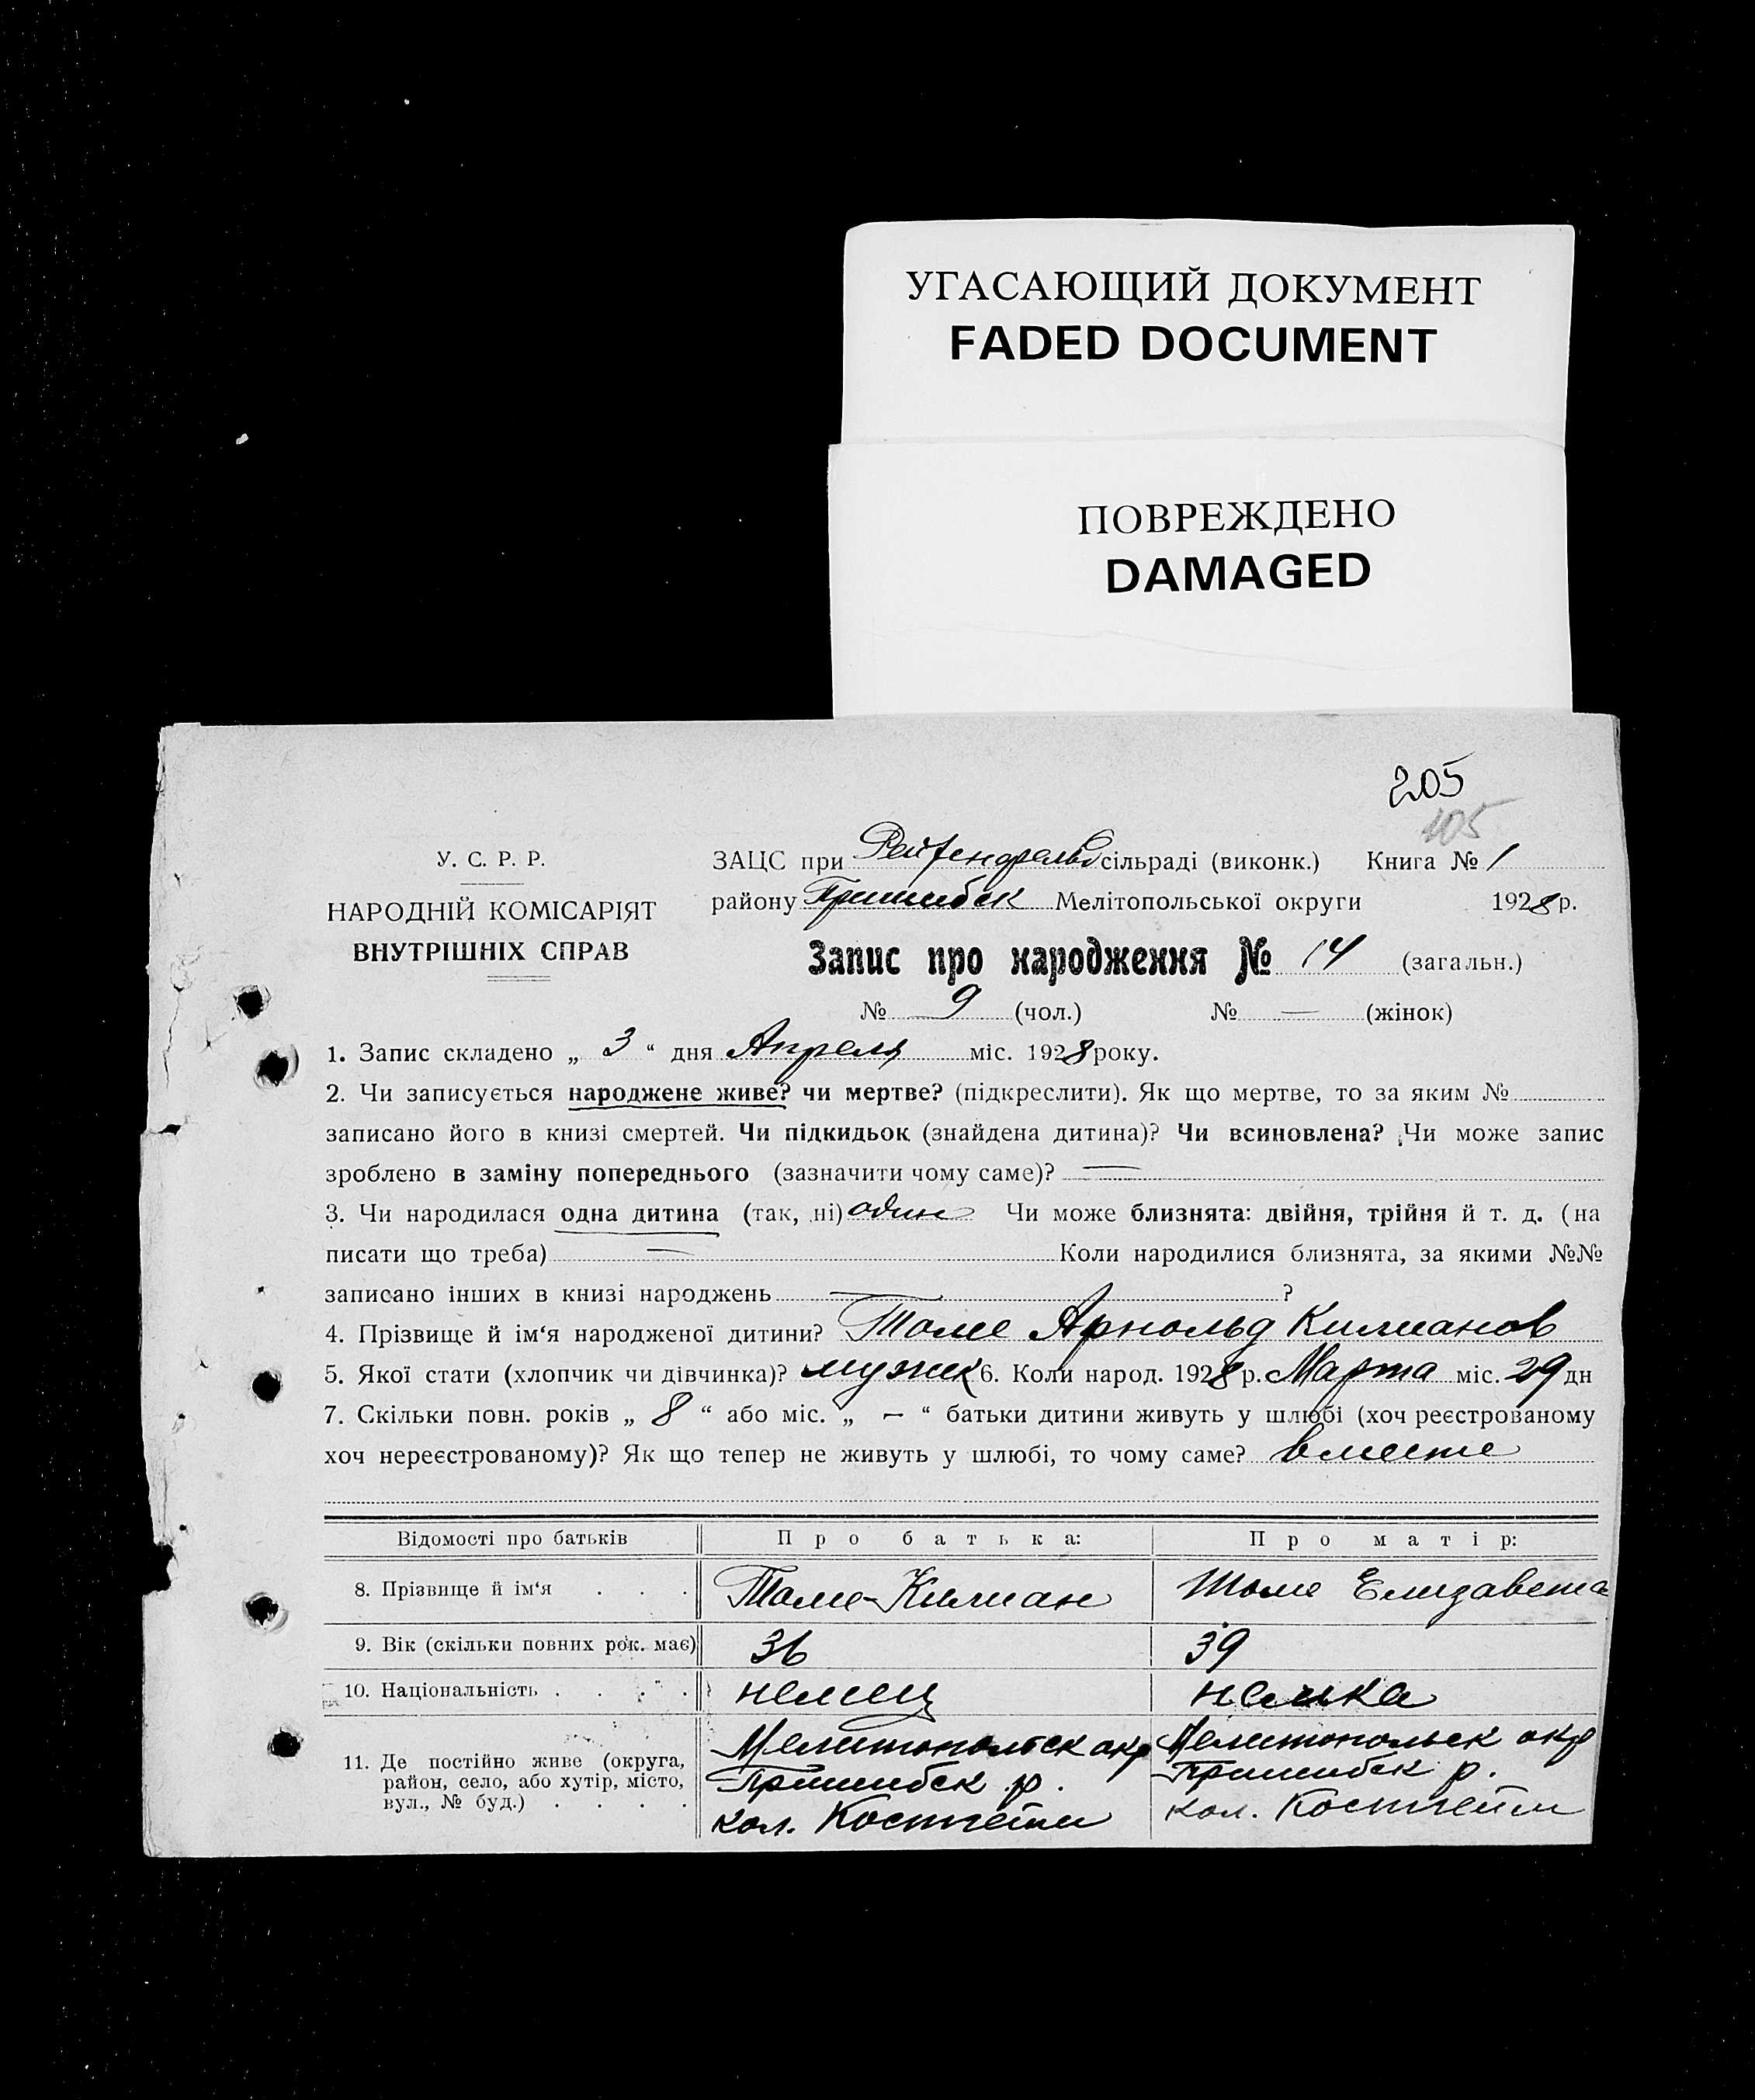 УГАСАЮЩИЙ ДОКУМЕНТ
FADED DOCUMENT
ПОВРЕЖДЕНО
DAMAGED
205
105
У. С. Р. Р.
НАРОДНІЙ КОМІСАРІЯТ
ВНУТРІШНІХ СПРАВ
ЗАЦС при Рейхенфельд сільраді (виконк.) Книга № 1
району Пришибск Мелітопольської округи 1928 р.
Запис про народження № 14 (загальн.)
№ 9 (чол.) № — (жінок)
1. Запис складено „ 3 “ дня Апреля міс. 1928 року.
2. Чи записується народжене живе? чи мертве? (підкреслити). Як що мертве, то за яким №
записано його в книзі смертей. Чи підкидьок (знайдена дитина)? Чи всиновлена? Чи може запис
зроблено в заміну попереднього (зазначити чому саме)? —
3. Чи народилася одна дитина (так, ні) один Чи може близнята: двійня, трійня й т. д. (на
писати що треба) — Коли народилися близнята, за якими №№
записано інших в книзі народжень — ?
4. Прізвище й ім‘я народженої дитини? Томе Арнольд Килианов
5. Якої стати (хлопчик чи дівчинка)? мужск 6. Коли народ. 1928 р. Марта міс. 29 дн
7. Скільки повн. років „ 8 “ або міс. „ — “ батьки дитини живуть у шлюбі (хоч реєстрованому
хоч нереєстрованому)? Як що тепер не живуть у шлюбі, то чому саме? вместе
Відомості про батьків Про батька: Про матір:
8. Прізвище й ім‘я . . . Томе-Килиан Томе Елизавета
9. Вік (скільки повних рок. має) 36 39
10. Національність . . . . немец немка
11. Де постійно живе (округа, район, село, або хутір, місто, вул., № буд.) . . . .
Мелитопольск окр
Пришибск р.
кол. Костгейм
Мелитопольск окр
Пришибск р.
кол. Костгейм